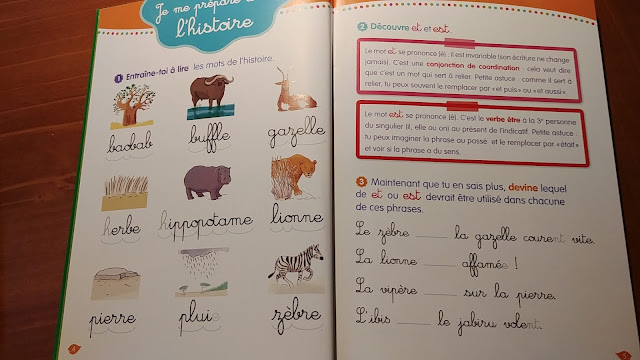 Je me prépare à
l'histoire
1 Entraîne-toi à lire les mots de l'histoire.
baobab buffle gazelle
herbe hippopotame lionne
pierre pluie zèbre
4
2 Découvre et et est.
Le mot et se prononce [é] : il est invariable (son écriture ne change
jamais). C'est une conjonction de coordination : cela veut dire
que c'est un mot qui sert à relier. Petite astuce : comme il sert à
relier, tu peux souvent le remplacer par « et puis » ou « et aussi ».
Le mot est se prononce [è]. C'est le verbe être à la 3e personne
du singulier (il, elle ou on) au présent de l'indicatif. Petite astuce :
tu peux imaginer la phrase au passé et le remplacer par « était »
et voir si la phrase a du sens.
3 Maintenant que tu en sais plus, devine lequel
de et ou est devrait être utilisé dans chacune
de ces phrases.
Le zèbre ____ la gazelle courent vite.
La lionne ____ affamée !
La vipère ____ sur la pierre.
L'ibis ____ le jabiru volent.
5